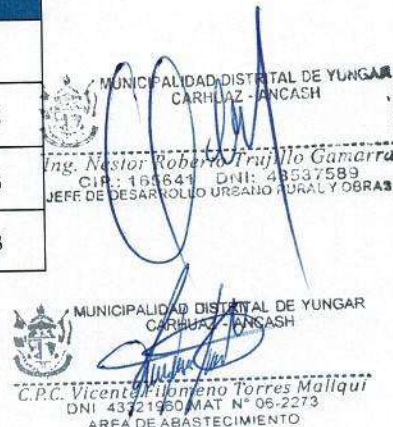 MUNICIPALIDAD DISTRITAL DE YUNGAR
CARHUAZ - ANCASH
Ing. Nestor Roberto Trujillo Gamarra
CIP.: 165641 DNI: 43537589
JEFE DE DESARROLLO URBANO RURAL Y OBRAS
MUNICIPALIDAD DISTRITAL DE YUNGAR
CARHUAZ - ANCASH
C.P.C. Vicente Filomeno Torres Mallqui
DNI 43321960 MAT N° 06-2273
AREA DE ABASTECIMIENTO